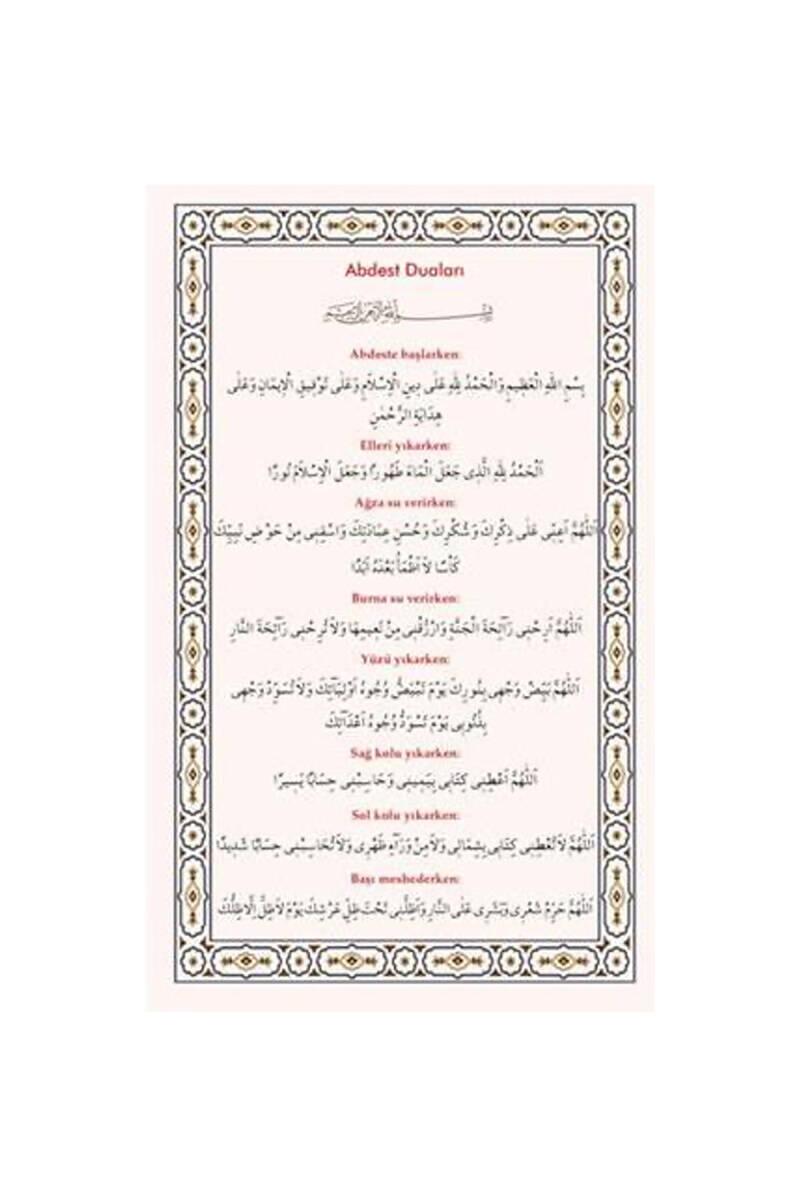 Abdest Duaları
بسم الله الرحمن الرحيم
Abdeste başlarken:
بِسْمِ اللهِ الْعَظِيمِ وَالْحَمْدُ لِلّٰهِ عَلٰى دِينِ الْاِسْلَامِ وَعَلٰى تَوْفِيقِ الْاِيمَانِ وَعَلٰى
هِدَايَةِ الرَّحْمٰنِ
Elleri yıkarken:
اَلْحَمْدُ لِلّٰهِ الَّذِى جَعَلَ الْمَاءَ طَهُورًا وَجَعَلَ الْاِسْلَامَ نُورًا
Ağza su verirken:
اَللّٰهُمَّ اَعِنِّى عَلٰى ذِكْرِكَ وَشُكْرِكَ وَحُسْنِ عِبَادَتِكَ وَاسْقِنِى مِنْ حَوْضِ نَبِيِّكَ
كَأْسًا لَا اَظْمَأُ بَعْدَهُ اَبَدًا
Burna su verirken:
اَللّٰهُمَّ اَرِحْنِى رَائِحَةَ الْجَنَّةِ وَارْزُقْنِى مِنْ نَعِيمِهَا وَلَا تُرِحْنِى رَائِحَةَ النَّارِ
Yüzü yıkarken:
اَللّٰهُمَّ بَيِّضْ وَجْهِى بِنُورِكَ يَوْمَ تَبْيَضُّ وُجُوهُ اَوْلِيَائِكَ وَلَا تُسَوِّدْ وَجْهِى
بِذُنُوبِى يَوْمَ تَسْوَدُّ وُجُوهُ اَعْدَائِكَ
Sağ kolu yıkarken:
اَللّٰهُمَّ اَعْطِنِى كِتَابِى بِيَمِينِى وَحَاسِبْنِى حِسَابًا يَسِيرًا
Sol kolu yıkarken:
اَللّٰهُمَّ لَا تُعْطِنِى كِتَابِى بِشِمَالِى وَلَا مِنْ وَرَاءِ ظَهْرِى وَلَا تُحَاسِبْنِى حِسَابًا شَدِيدًا
Başı meshederken:
اَللّٰهُمَّ حَرِّمْ شَعْرِى وَبَشَرِى عَلَى النَّارِ وَاَظِلَّنِى تَحْتَ ظِلِّ عَرْشِكَ يَوْمَ لَا ظِلَّ اِلَّا ظِلُّكَ